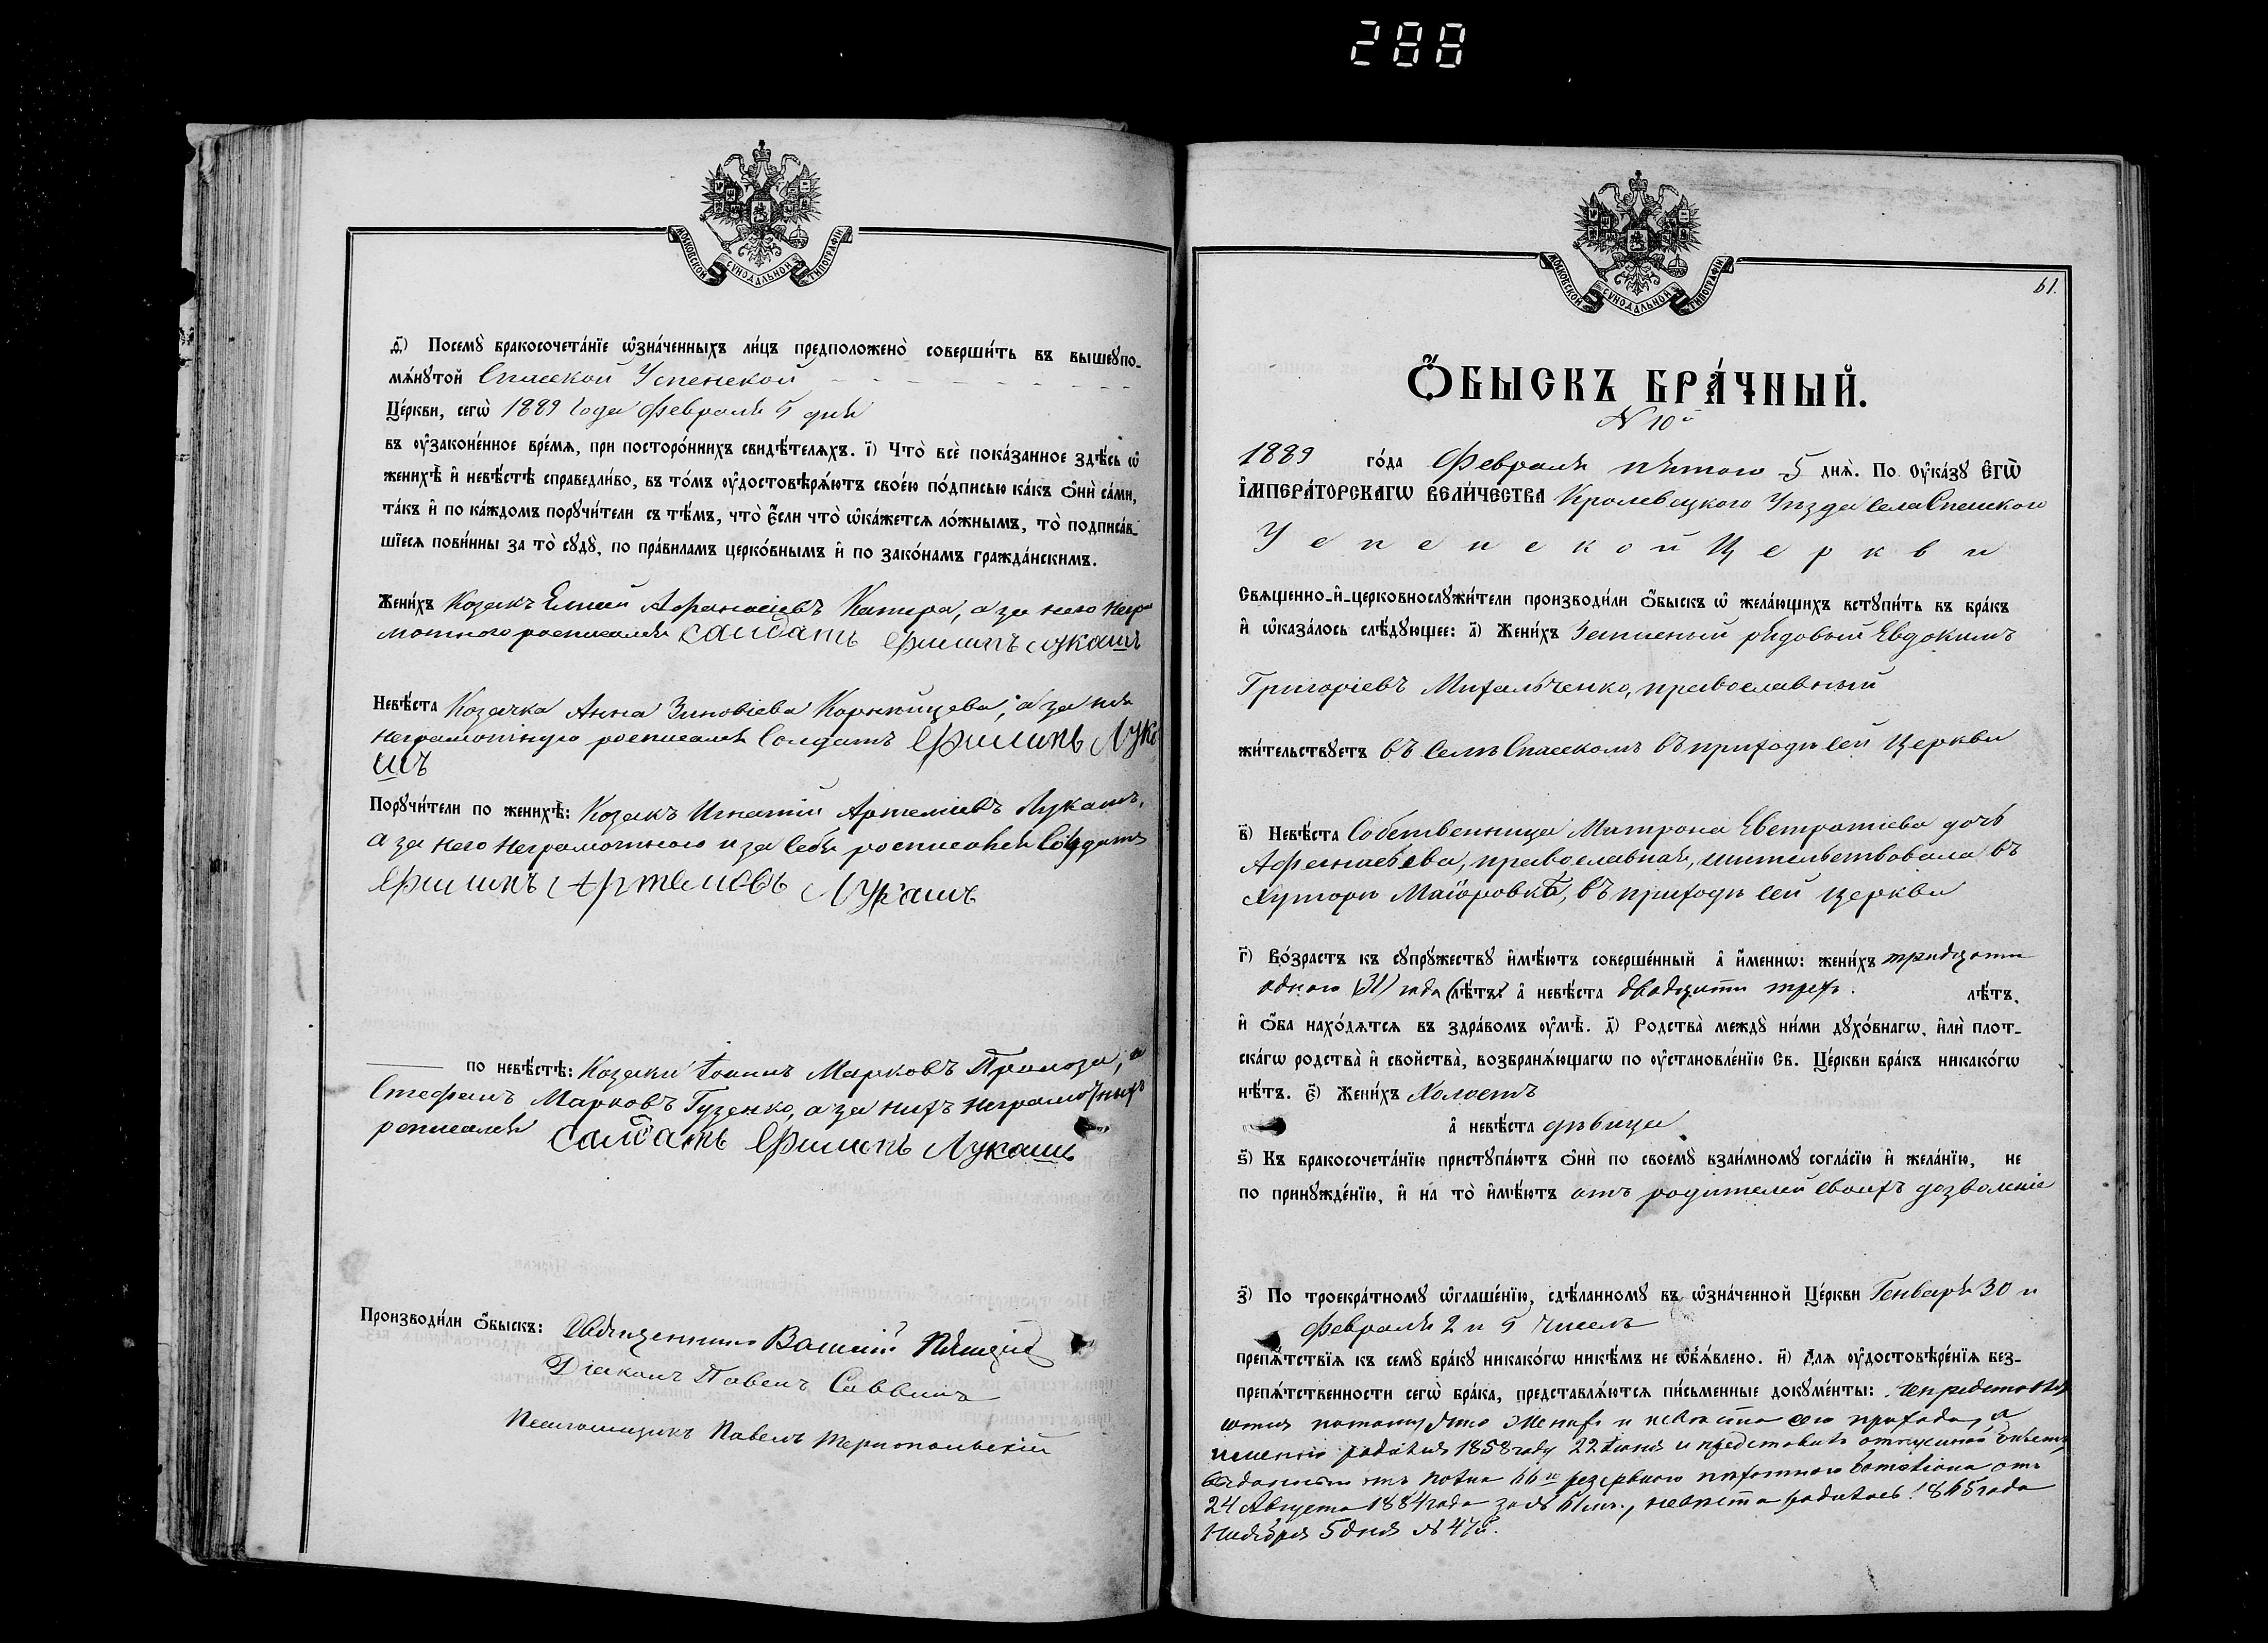 288
МОСКОВСКОЙ СѴНОДАЛЬНОЙ ТИПОГРАФІИ
д҃і) Посемꙋ̀ бракосочета́нїе ѡ҆зна́ченныхъ ли́цъ предположено̀ соверши́ть въ вышеꙋпо-
мѧ́нꙋтой Спасской Успенской
Це́ркви, сегѡ̀ 1889 года Февраля 5 дня
въ ᲂу҆зако́ненное вре́мѧ, при посторо́ннихъ свидѣ́телѧхъ. і҃) Что̀ всѐ пока́занное здѣ́сь ѡ҆
женихѣ̀ и҆ невѣ́стѣ справедли́во, въ то́мъ ᲂу҆достовѣрѧ́ютъ свое́ю по́дписью ка́къ ѻ҆нѝ са́ми,
та́къ и҆ по ка́ждомъ порꙋчи́тели съ тѣ́мъ, что̀ є҆́сли что̀ ѡ҆ка́жетсѧ ло́жнымъ, то̀ подписа́в-
шїесѧ пови́нны за то̀ сꙋдꙋ̀, по пра́виламъ церко́внымъ и҆ по зако́намъ гражда́нскимъ.
Жени́хъ Козакъ Елисей Афанасіевъ Катира, а за него негра
мотного росписался салдатъ Филипъ Лукашъ
Невѣ́ста Козачка Анна Зиновіева, а за нея
неграмотную росписался Солдатъ Филипъ Лука
шъ
Порꙋчи́тели по женихѣ̀: Козакъ Игнатій Артеміевъ Лукашъ,
а за него неграмотного и за себя росписался Солдатъ
Филипъ Артемовъ Лукашъ
по невѣ́стѣ: Козаки Іоаннъ Марковъ и
Стефанъ Марковъ Гузенко, а за нихъ неграмотныхъ
росписался салдатъ Филипъ Лукашъ
Производи́ли ѻ҆́быскъ: Священникъ Василій
Діаконъ Павелъ Саввинъ
Псаломщикъ Павелъ Тернопольскій
МОСКОВСКОЙ СѴНОДАЛЬНОЙ ТИПОГРАФІИ
61.
Ѻ҆́БЫСКЪ БРА́ЧНЫЙ.
N 10й
1889 го́да Февраля пятого 5 днѧ̀. По ᲂу҆ка́зꙋ Є҆гѡ̀
И҆мпера́торскагѡ Вели́чества Кролевецкого Уѣзда села Спасского
Успенской Церкви
Свѧщенно-и҆-церковнослꙋжи́тели производи́ли ѻ҆́быскъ ѡ҆ жела́ющихъ встꙋпи́ть въ бра́къ
и҆ ѡ҆каза́лось слѣ́дꙋющее: а҃) Жени́хъ Запасный рядовый Евдокимъ
Григоріевъ Михальченко, православный
жи́тельствꙋетъ въ селѣ Спасскомъ въ приходѣ сей Церкви
в҃) Невѣ́ста Собственница Матрона Евстратіева дочь
Афанасьева, православная, жительствовала въ
Хуторѣ Маіоровкѣ, въ приходѣ сей церкви
г҃) Во́зрастъ къ сꙋпрꙋ́жествꙋ и҆мѣ́ютъ соверше́нный а҆ и҆́меннѡ: жени́хъ тридцати
одного (31) года (лѣ́тъ) а҆ невѣ́ста двадцати трехъ. лѣ́тъ,
и҆ ѻ҆́ба нахо́дѧтсѧ въ здра́вомъ ᲂу҆мѣ̀. д҃) Родства̀ междꙋ̀ ни́ми дꙋхо́внагѡ, и҆лѝ плот-
ска́гѡ родства̀ и҆ свойства̀, возбранѧ́ющагѡ по ᲂу҆становле́нїю Св. Це́ркви бра́къ никако́гѡ
нѣ́тъ. є҃) Жени́хъ холостъ
а҆ невѣ́ста дѣвица
ѕ҃) Къ бракосочета́нїю пристꙋпа́ютъ ѻ҆нѝ по своемꙋ̀ взаи́мномꙋ согла́сїю и҆ жела́нїю, не
по принꙋжде́нїю, и҆ на то̀ и҆мѣ́ютъ отъ родителей своихъ дозволеніе
з҃) По троекра́тномꙋ ѡ҆глаше́нїю, сдѣ́ланномꙋ въ ѡ҆зна́ченной Це́ркви Генваря 30 и
Февраля 2 и 5 чиселъ
препѧ́тствїѧ къ семꙋ̀ бра́кꙋ никако́гѡ никѣ́мъ не ѡ҆бъѧ́влено. и҃) Длѧ ᲂу҆достовѣре́нїѧ без-
препѧ́тственности сегѡ̀ бра́ка, представлѧ́ютсѧ пи́сьменные докꙋме́нты: непредставля
ются потому что женихъ и невѣста сего прихода, а
именно родился 1858 году 22 Іюня и представилъ билетъ
66го резервного пехотного баталіона отъ
24 Августа 1884 года за №, невѣста родилась 1865 года
Ноября 5 дня №